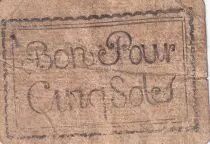 Bon Pour
Cinq Sols